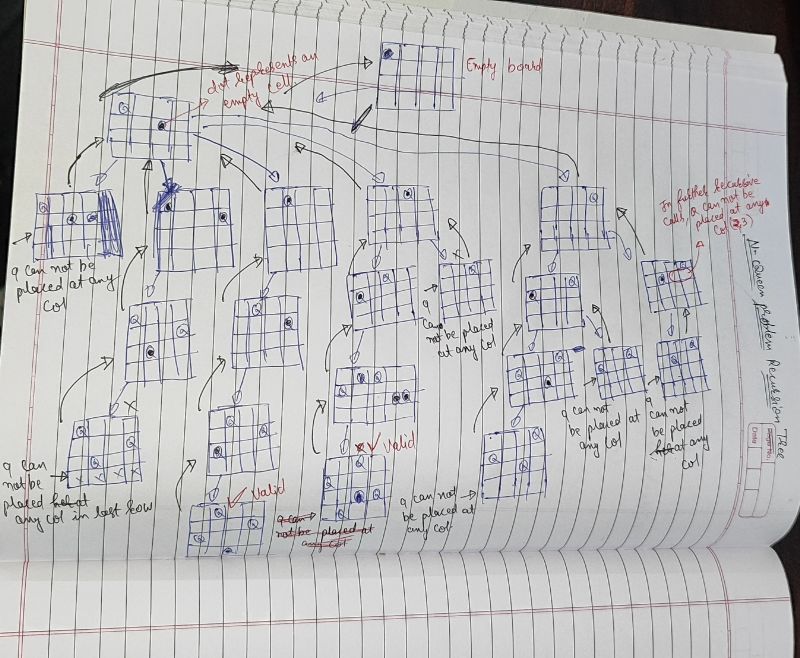 Empty board
dot represents an
empty cell
In further recursive
calls, Q can not be
placed at any
col (2,3)
N-Queen problem Recursion Tree
Q
Q
Q
Q
Q
q can not be
placed at any
col
Q
q
can
not be placed
at any col
Q
Q
Q
Q
Q
Q
Q
Q
Q
Q
Q
q can not
be placed at
any col
q
can not
be placed
at any
col
X
Q
Q
Q
X X X X
q can
not be
placed at
any col in last row
Q
Q
Q
Valid
Q
Q
Q
q can not
be placed at
any col
Valid
Q
Q
Q
q can
not be placed at
any col
Page No.
Date